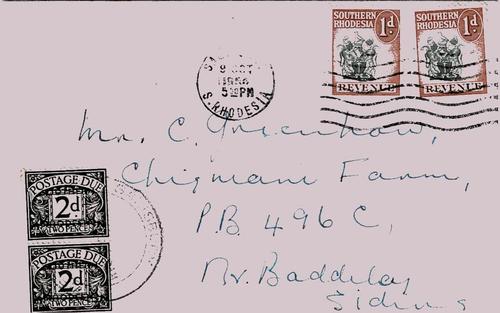 SOUTHERN RHODESIA 1d. REVENUE
SOUTHERN RHODESIA 1d. REVENUE
9 OCT
1956
5 PM
S. RHODESIA
Mr. C. Greenhow,
Chigwani Farm,
P.B. 496 C,
Nr. Baddeley
Siding
POSTAGE DUE
2d.
TWO PENCE
POSTAGE DUE
2d.
TWO PENCE